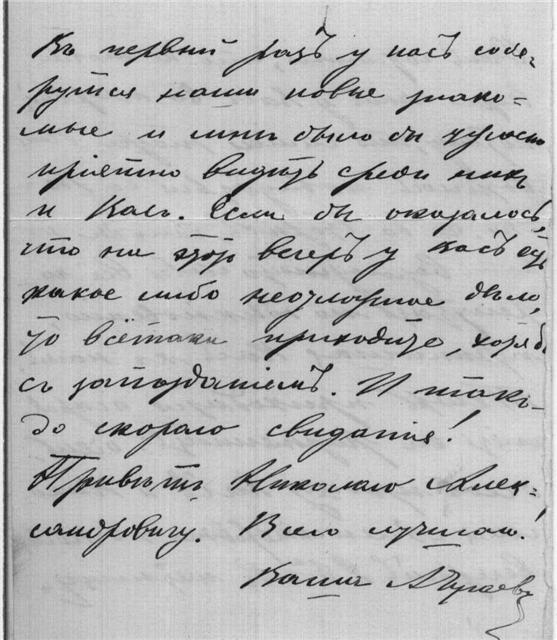 Въ первый разъ у насъ собе-
рутся наши новые знако-
мые и мнѣ было бы ужасно
пріятно видѣть среди нихъ
и Васъ. Если бы оказалось,
что на этотъ вечеръ у Васъ есть
какое либо неотложное дѣло,
то всётаки приходите, хотя бы
съ запозданіемъ. И такъ-
до скораго свиданія!
Привѣтъ Николаю Алек-
сандровичу. Всего лучшаго!
Ваша